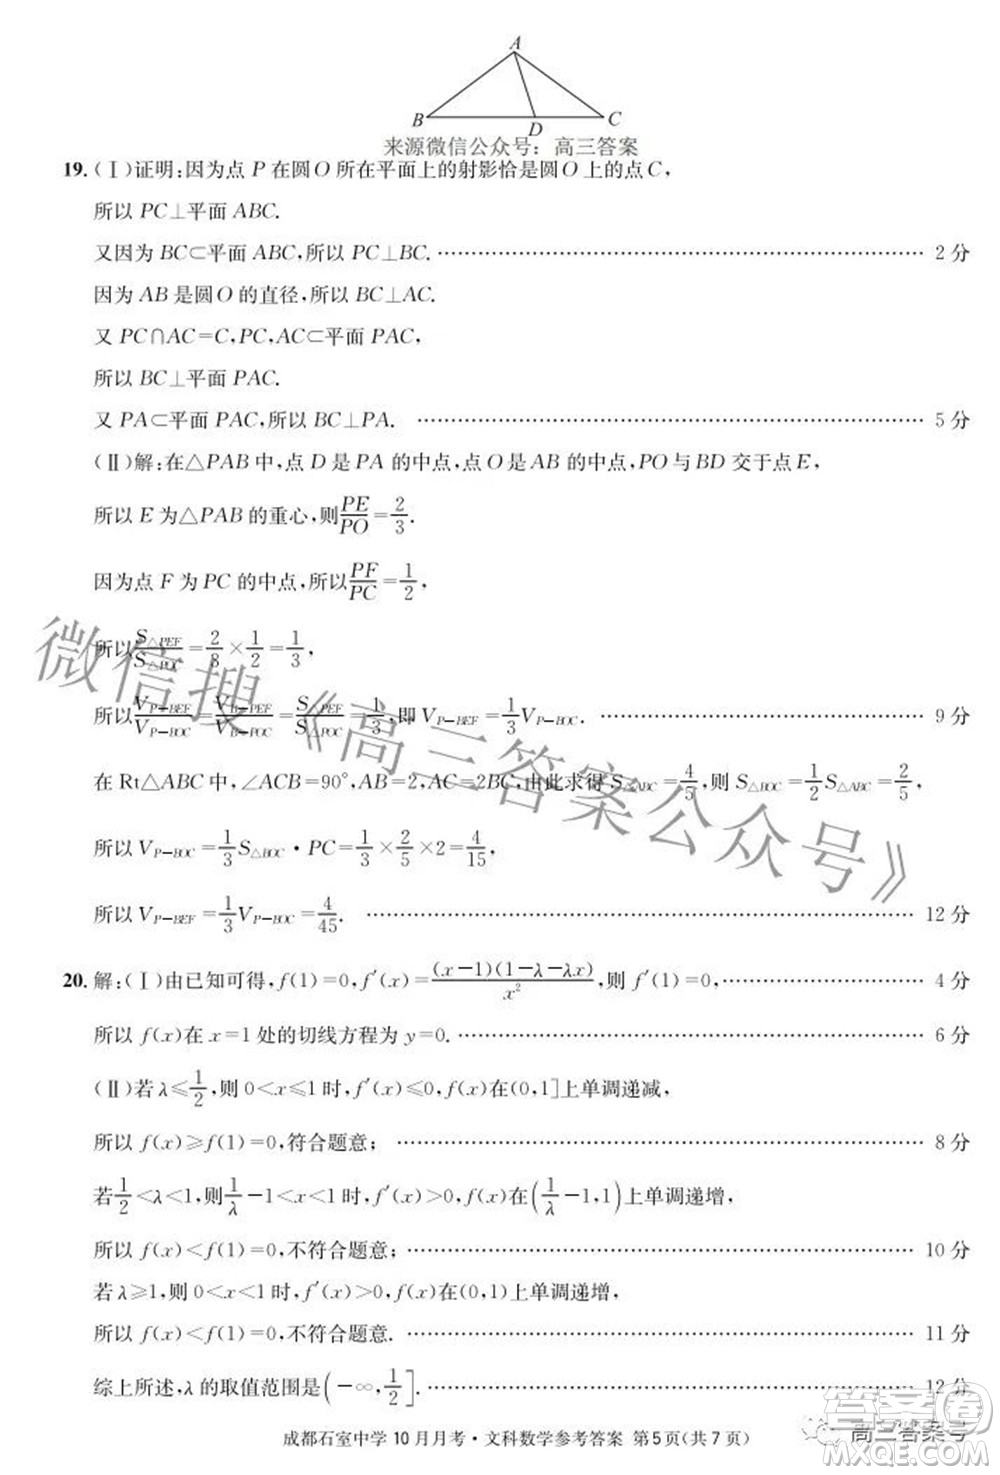 A
B D C
来源微信公众号：高三答案
19.(Ⅰ)证明:因为点 P 在圆O 所在平面上的射影恰是圆O 上的点C,
所以 PC⊥平面 ABC.
又因为 BC⊂平面 ABC,所以 PC⊥BC. …… 2 分
因为 AB 是圆O 的直径,所以 BC⊥AC.
又 PC∩AC=C,PC,AC⊂平面 PAC,
所以 BC⊥平面 PAC.
又 PA⊂平面 PAC,所以 BC⊥PA. …… 5 分
(Ⅱ)解:在△PAB 中,点 D 是 PA 的中点,点 O 是 AB 的中点,PO 与 BD 交于点 E,
所以 E 为△PAB 的重心,则PE/PO=2/3.
因为点 F 为 PC 的中点,所以PF/PC=1/2,
所以S△PEF/S△POC=2/8×1/2=1/3,
所以V P-BEF/V P-BOC=V B-PEF/V B-POC=S△PEF/S△POC=1/3,即 V P-BEF=1/3 V P-BOC. …… 9 分
在 Rt△ABC 中,∠ACB=90°,AB=2,AC=2BC,由此求得 S△ABC=4/5,则 S△BOC=1/2 S△ABC=2/5,
所以 V P-BOC=1/3 S△BOC·PC=1/3×2/5×2=4/15,
所以 V P-BEF=1/3 V P-BOC=4/45. …… 12 分
20.解:(Ⅰ)由已知可得,f(1)=0,f′(x)=(x-1)(1-λ-λx)/x²,则 f′(1)=0, …… 4 分
所以 f(x)在 x=1 处的切线方程为 y=0. …… 6 分
(Ⅱ)若 λ≤1/2,则 0<x≤1 时,f′(x)≤0,f(x)在(0,1]上单调递减,
所以 f(x)≥f(1)=0,符合题意; …… 8 分
若1/2<λ<1,则1/λ-1<x<1 时,f′(x)>0,f(x)在(1/λ-1,1)上单调递增,
所以 f(x)<f(1)=0,不符合题意; …… 10 分
若 λ≥1,则 0<x<1 时,f′(x)>0,f(x)在(0,1)上单调递增,
所以 f(x)<f(1)=0,不符合题意. …… 11 分
综上所述,λ 的取值范围是(-∞,1/2]. …… 12 分
成都石室中学 10 月月考·文科数学参考答案 第 5 页(共 7 页)
微信搜《高三答案公众号》
高三答案号
答案圈
MXQE.COM